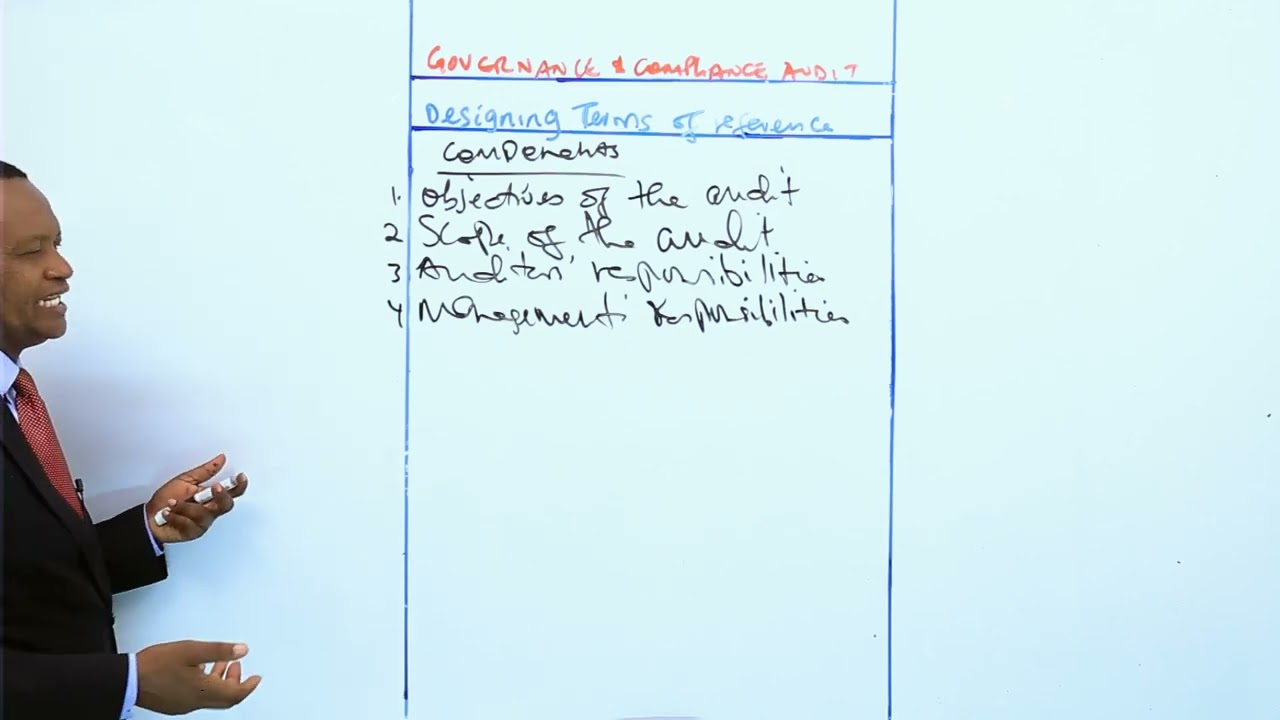 GOVERNANCE & COMPLIANCE AUDIT
Designing Terms of reference
Components
1. Objectives of the audit
2 Scope of the audit
3 Auditors' responsibilities
4 Management's responsibilities